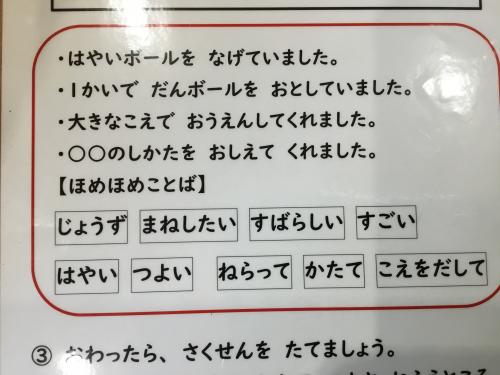 ・はやいボールを なげていました。
・1かいで だんボールを おとしていました。
・大きなこえで おうえんしてくれました。
・〇〇のしかたを おしえて くれました。
【ほめほめことば】
じょうず まねしたい すばらしい すごい
はやい つよい ねらって かたて こえをだして
③ おわったら、さくせんを たてましょう。